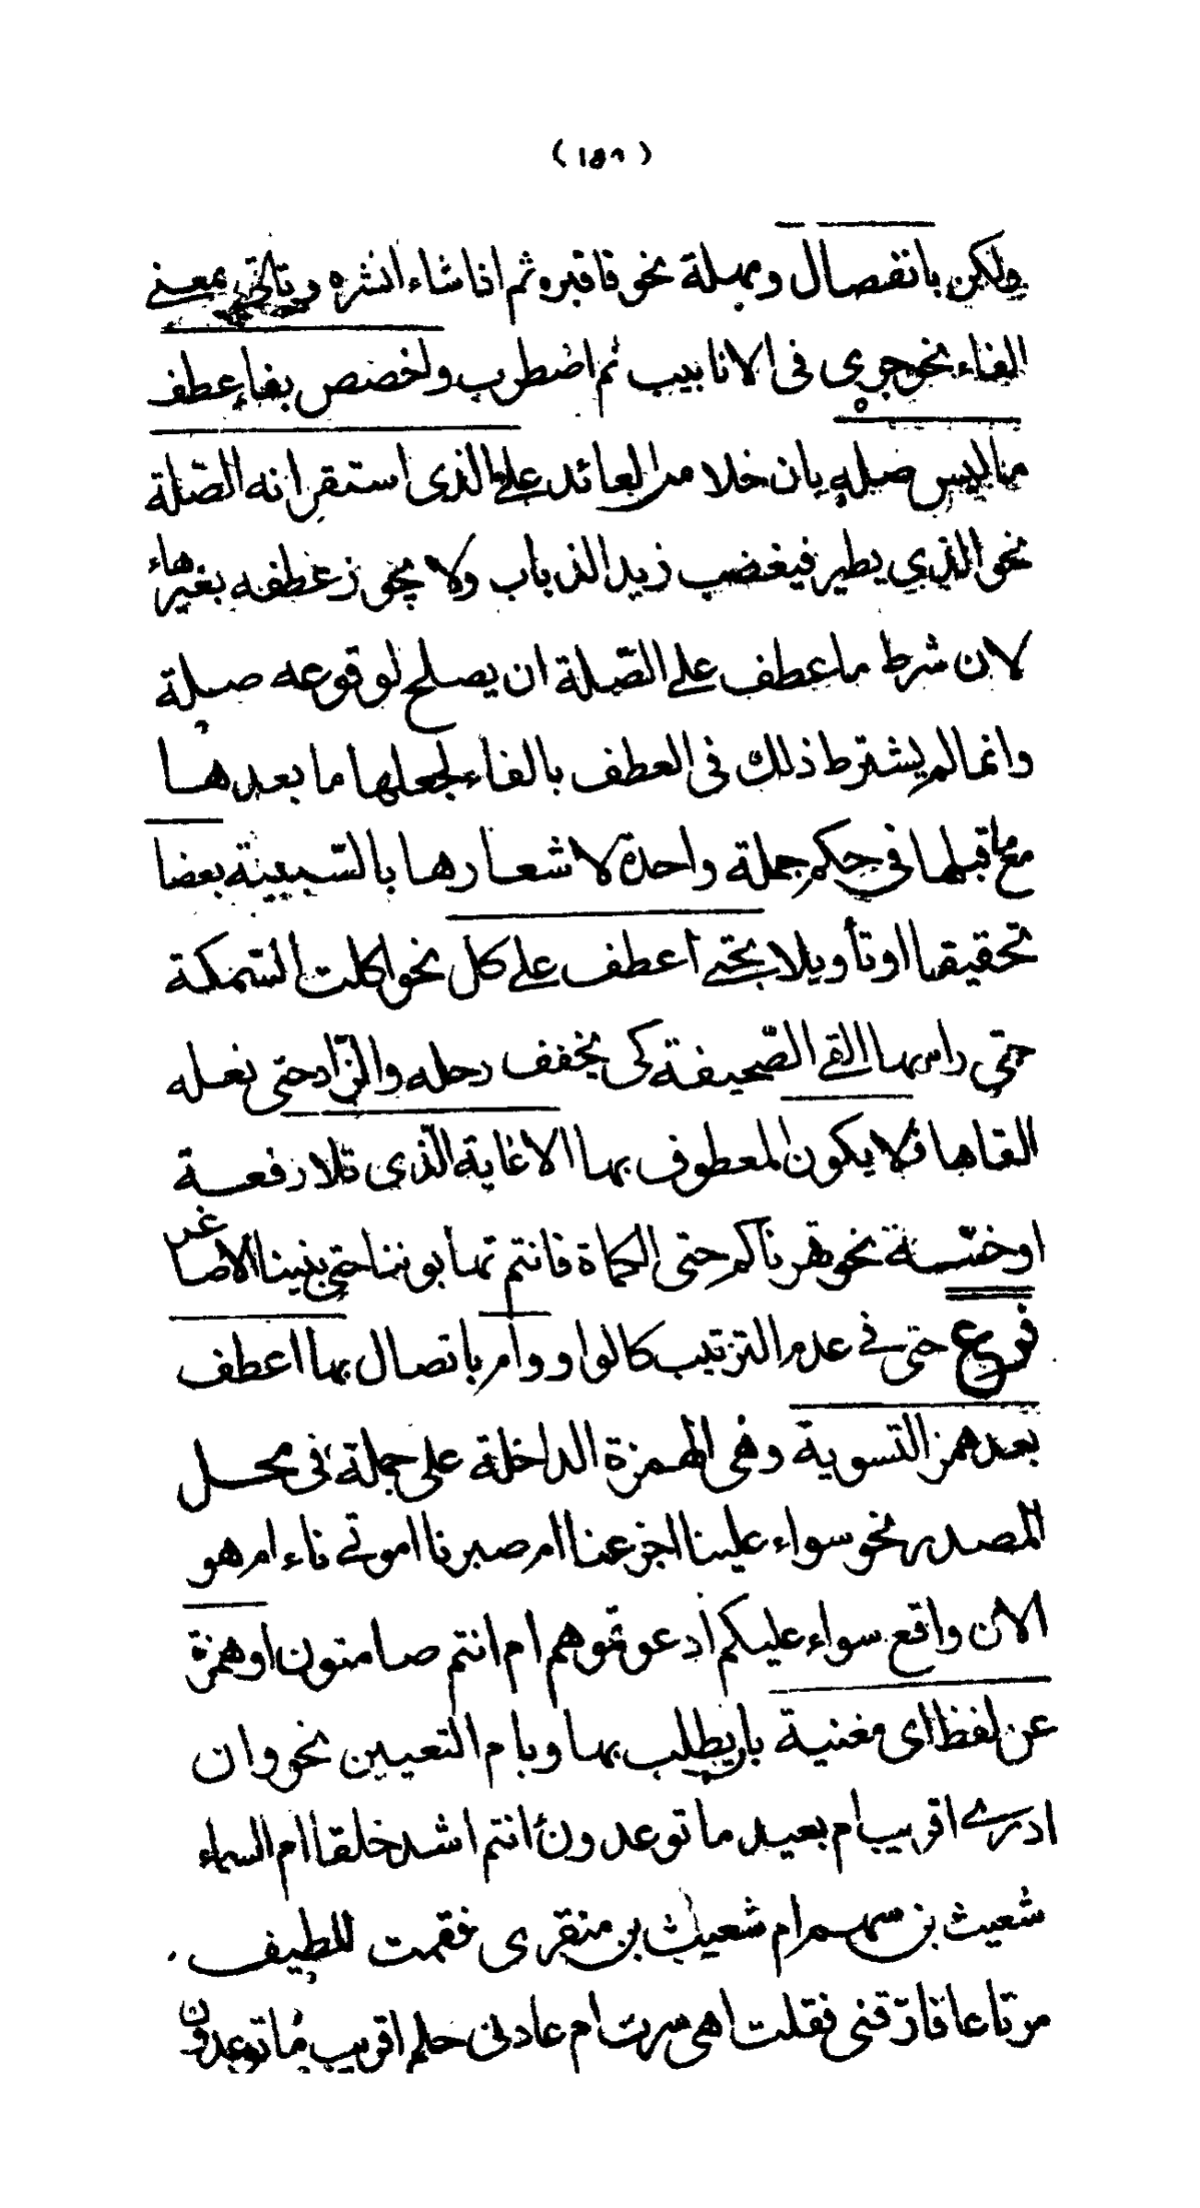 (١٥٩)
ولكن بانفصال ومهملة نحو فاقبره ثم اذا شاء انشره وتاتى بمعنى
الفاء نحو جرى فى الانابيب ثم اضطرب واخصص بفاء عطف
ما ليس صلة بان خلا من العائد على الذى استقر انه الصّلة
نحو الذي يطير فيغضب زيد الذباب ولا يجوز عطفه بغيرهاء
لان شرط ما عطف على الصّلة ان يصلح لوقوعه صلة
وانما لم يشترط ذلك فى العطف بالفاء لجعلها ما بعدها
مع ما قبلها فى حكم جملة واحدة لاشعارها بالسّببية بعضا
تحقيقا او تأويلا بحتى اعطف على كل نحو اكلت السّمكة
حتى راسها القى الصّحيفة كى يخفف رحله والزّاد حتى نعله
القاها فلا يكون المعطوف بها الا غاية الّذى تلا رفعة
او خسّة نحو قهرناكم حتى الكماة فانتم تهابوننا حتى بنينا الاصاغر
فرع حتى فى عدم الترتيب كالواو وام باتصال بها اعطف
بعد همز التسوية وهى الهمزة الداخلة على جملة فى محل
المصدر نحو سواء علينا اجزعنا ام صبرنا اموتى ناء ام هو
الان واقع سواء عليكم ادعوتموهم ام انتم صامتون او همزة
عن لفظ اى مغنية بان يطلب بها وبام التعيين نحو وان
ادرى اقريب ام بعيد ما توعدون ءانتم اشد خلقا ام السماء
شعيث بن سهم ام شعيث بن منقرى فقمت للطيف
مرتاعا فارّقنى فقلت اهى سرت ام عادنى حلم اقريب ما توعدون